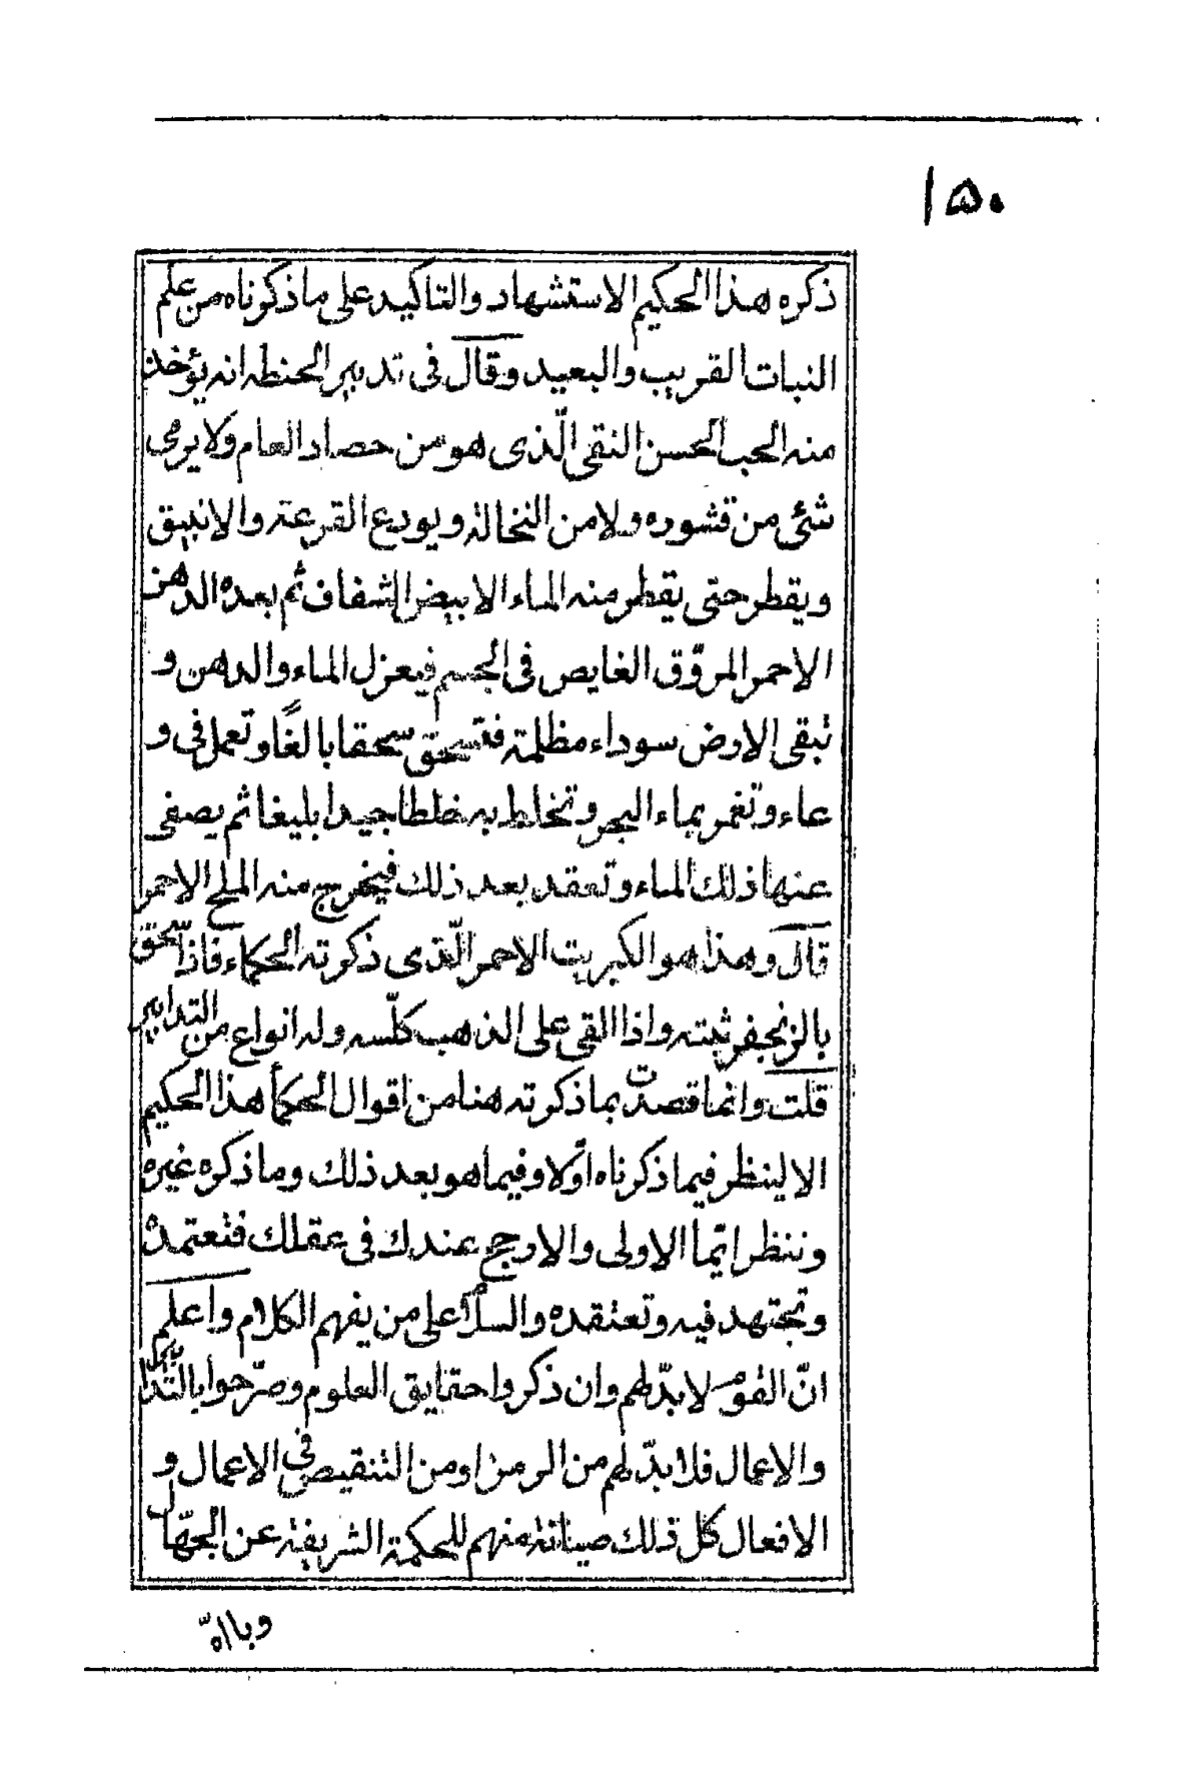 ١۵٠
ذكره هذا الحكيم الاستشهاد والتاكيد على ما ذكرناه من علم
النبات القريب والبعيد وقال فى تدبير الحنطه انه يؤخذ
منه الحب الحسن النقى الّذى هو من حصاد العام ولا يرمى
شئ من قشوره ولا من النخالة ويودع القرعة والانبيق
ويقطر حتى يقطر منه الماء الابيض الشفاف ثم بعده الدهن
الاحمر المروّق الغايص فى الجسم فيعزل الماء والدهن و
تبقى الارض سوداء مظلمة فتسحق سحقا بالغًا وتعمل فى و
عاء وتغمر بماء البحر وتخلط به خلطا جيدا بليغا ثم يصفى
عنها ذلك الماء وتعقد بعد ذلك فيخرج منه الملح الاحمر
قال وهذا هو الكبريت الاحمر الّذى ذكرته الحكماء فاذا سحق
بالزنجفر ثبته واذا القى على الذهب كلّسه وله انواع من التدابير
قلت وانّما قصدت بما ذكرته هنا من اقوال الحكمأ هذا الحكيم
الا لينظر فيما ذكرناه اوّلا وفيما هو بعد ذلك وما ذكره غيره
وننظر ايّما الاولى والارجح عندك فى عقلك فتعتمدهٔ
وتجتهد فيه وتعتقده والسلام على من يفهم الكلام واعلم
انّ القوم لا بدّ لهم وان ذكروا حقايق العلوم وصرّحوا بالتّدابير
والاعمال فلا بدّ لهم من الرمز او من التنقيص فى الاعمال و
الافعال كل ذلك صيانة منهم للحكمة الشريفة عن الجهّال
وبالله